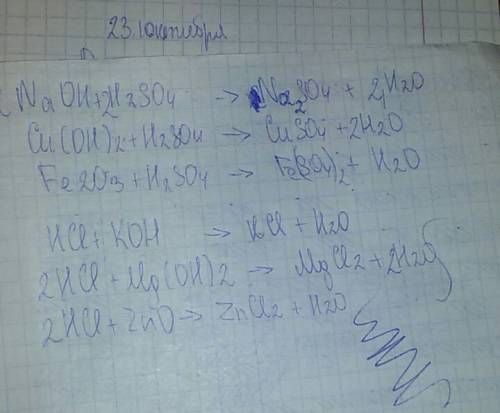 23. октября
2 NaOH + 2H2SO4 → Na2SO4 + 2H2O
Cu(OH)2 + H2SO4 → CuSO4 + 2H2O
Fe2O3 + H2SO4 → Fe(SO4)2 + H2O
HCl + KOH → KCl + H2O
2HCl + Mg(OH)2 → MgCl2 + 2H2O
2HCl + ZnO → ZnCl2 + H2O